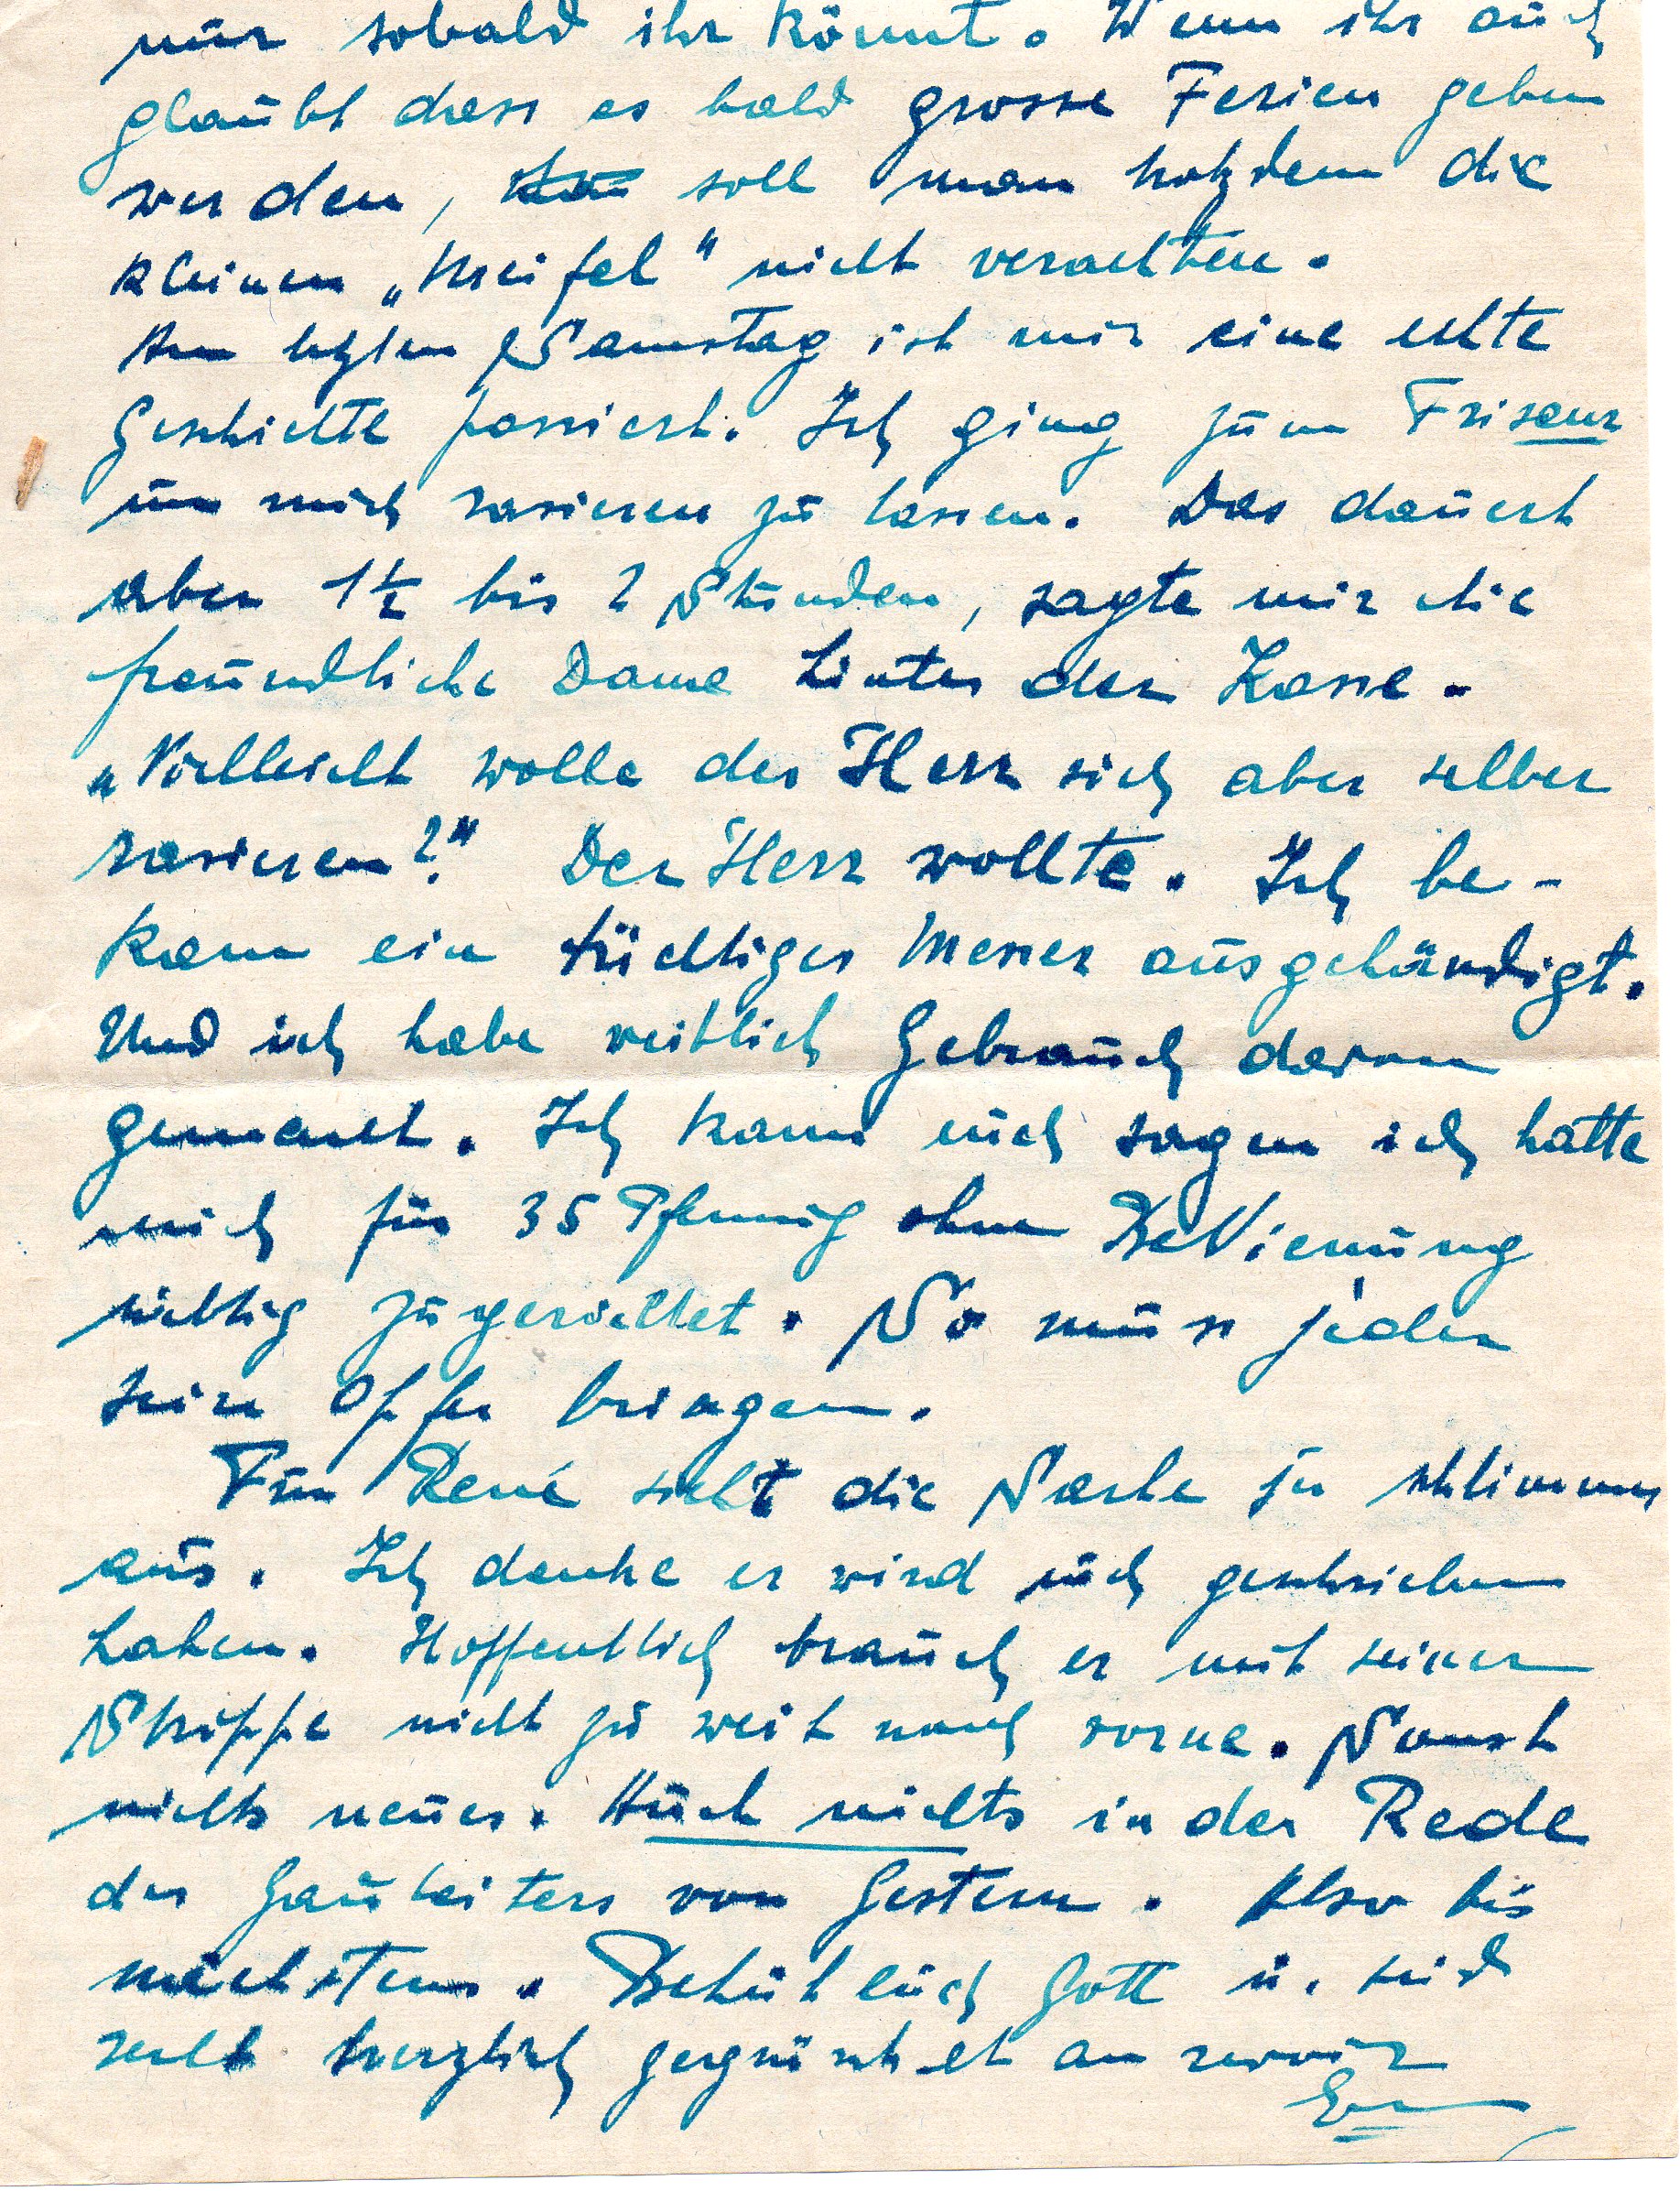 nur sobald ihr könnt. Wenn ihr auch
glaubt dass es bald grosse Ferien geben
werden, soll man trotzdem die
kleinen „ " nicht verachten.
Am letzten Samstag ist mir eine echte
Geschichte passiert. Ich ging zum Friseur
um mich rasieren zu lassen. Das dauert
aber 1½ bis 2 Stunden, sagte mir die
freundliche Dame hinter der Kasse.
„Vielleicht wolle der Herr sich aber selber
rasieren?" Der Herr wollte. Ich be-
kam ein tüchtiges Messer ausgehändigt.
Und ich habe reichlich Gebrauch davon
gemacht. Ich kann euch sagen ich hatte
mich für 35 Pfennig ohne Bedienung
richtig zugerichtet. So muss jeder
sein Opfer bringen.
Für René sieht die Sache ja schlimm
aus. Ich denke er wird euch geschrieben
haben. Hoffentlich brauch er mit seiner
nicht zu weit nach vorne. Sonst
nichts neues. Auch nichts in der Rede
des Gauleiters von Gestern. Also bis
nächstens. Behüt euch Gott u. seid
recht herzlich au revoir